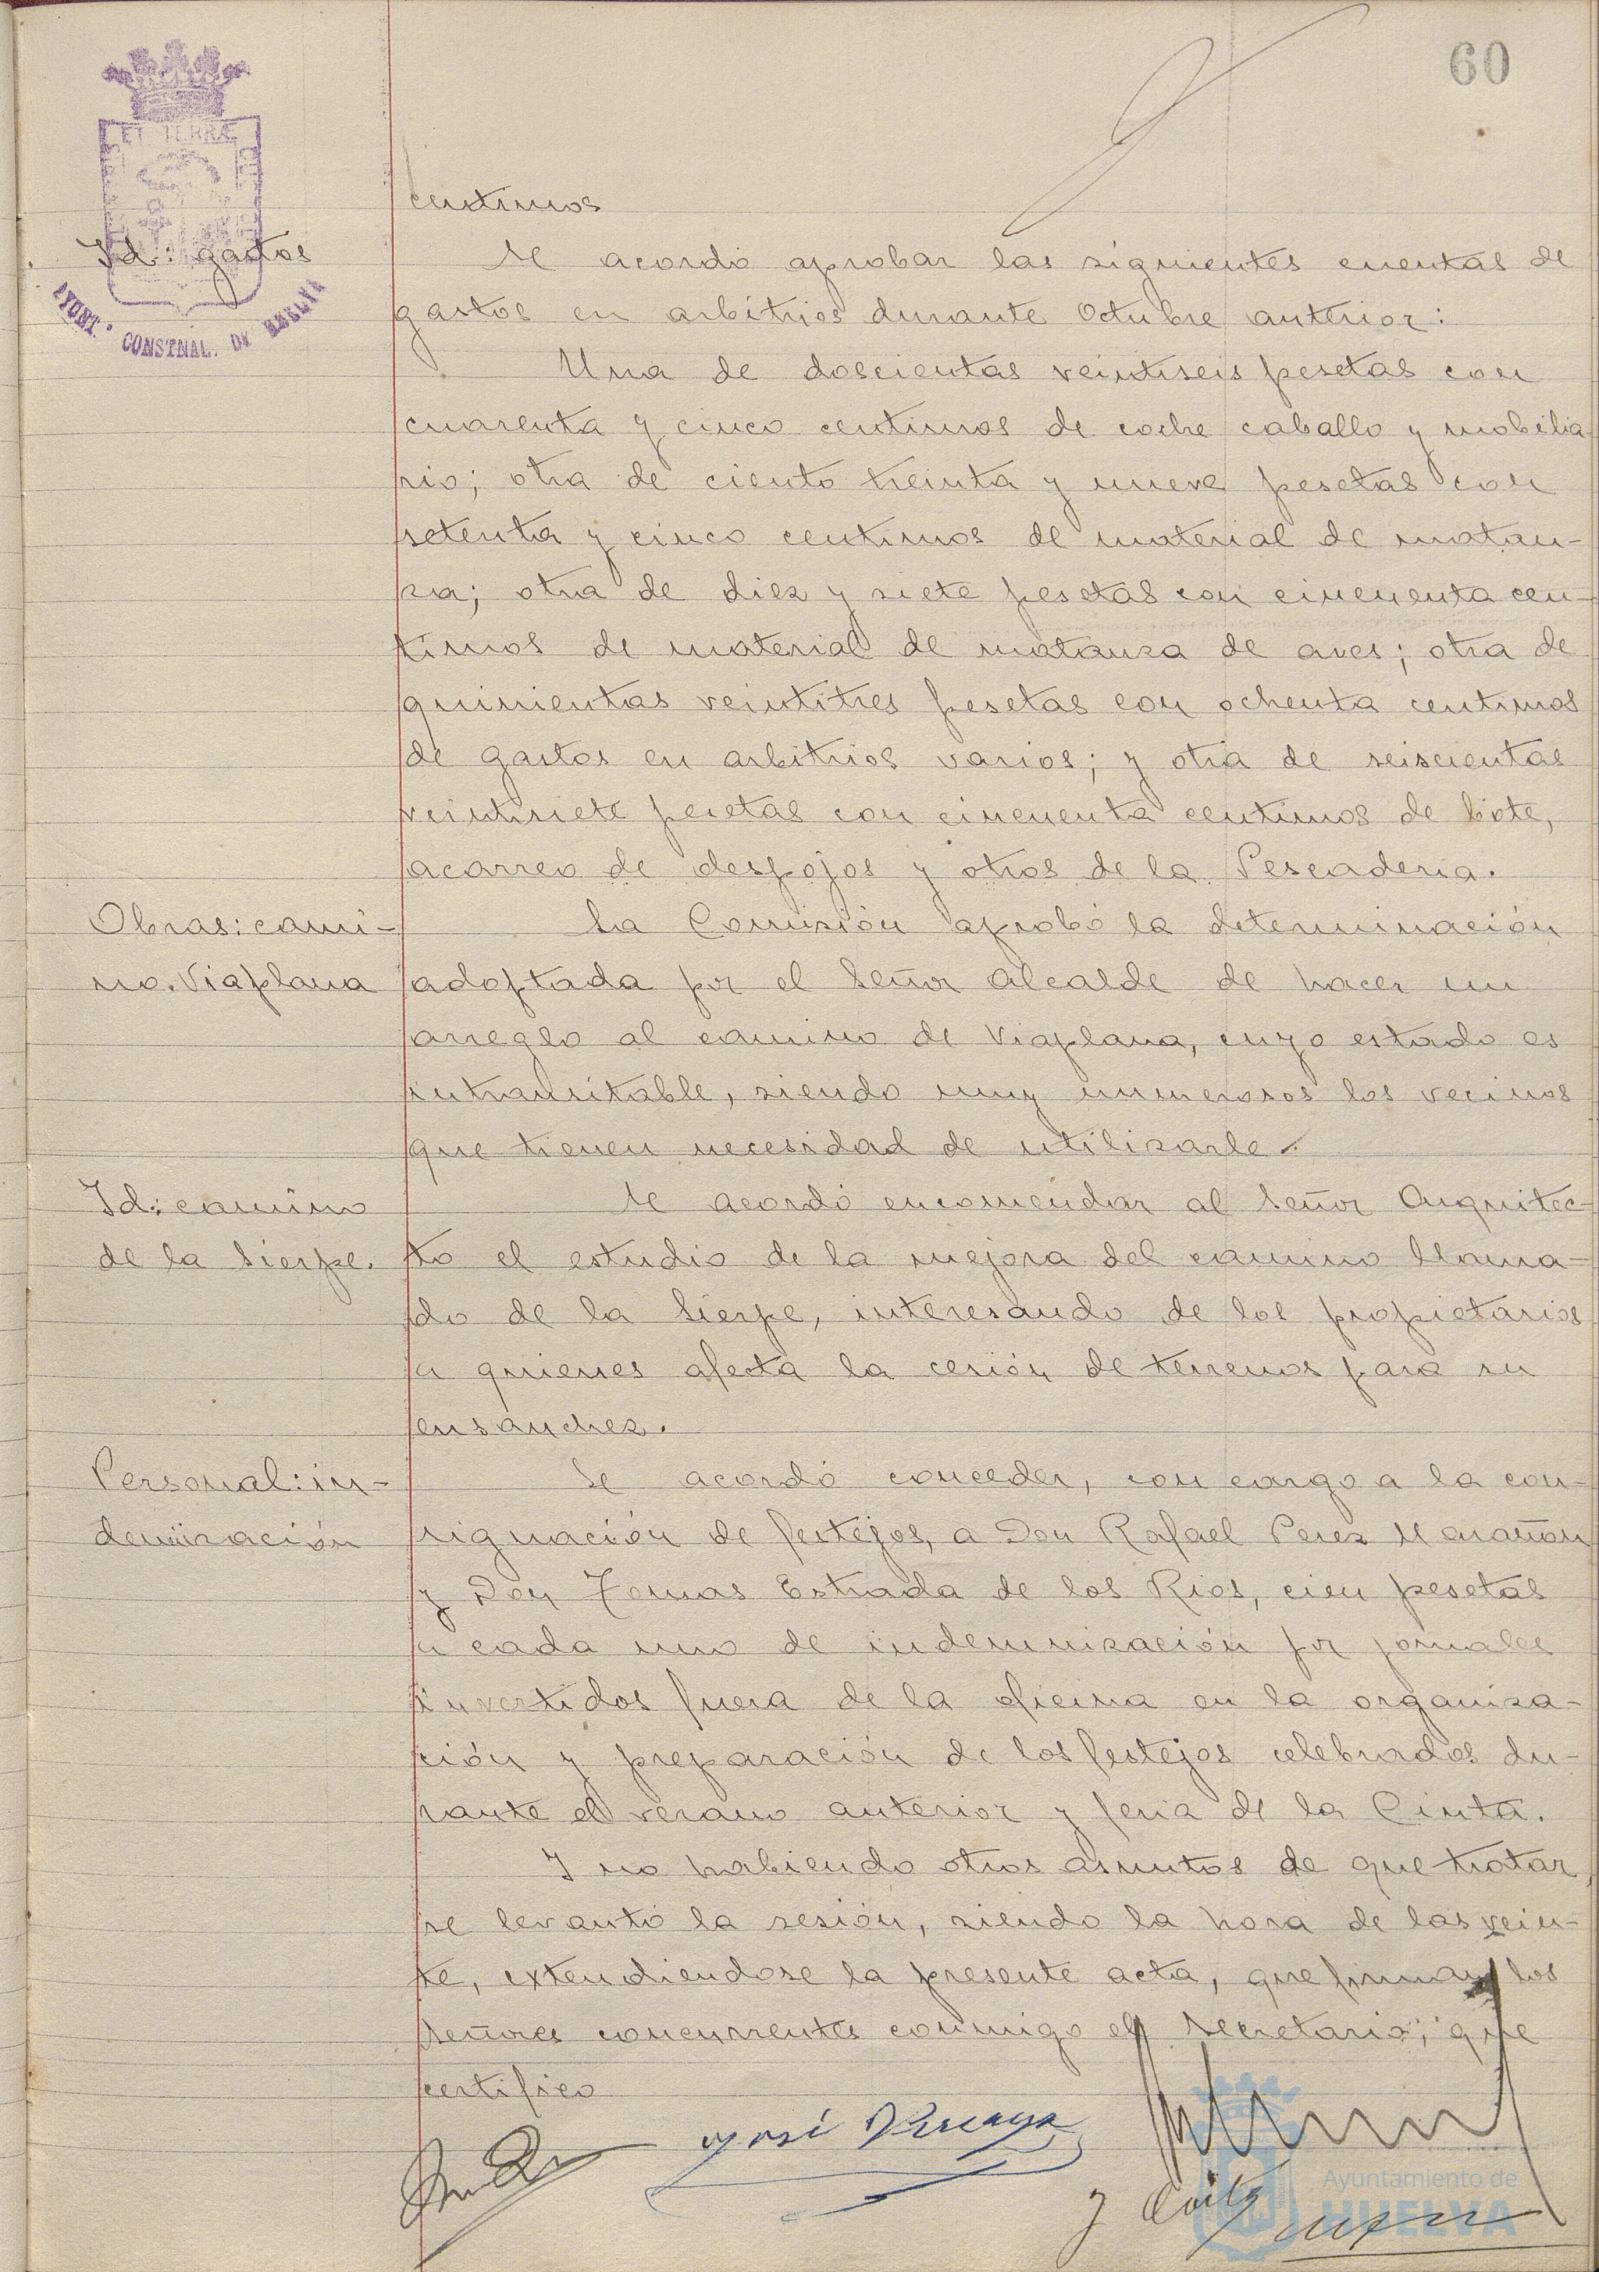 60
ET TERRÆ
AYUNT. CONSTNAL. DE HUELVA
centimos
Id: gastos
Se acordó aprobar las siguientes cuentas de
gastos en arbitrios durante Octubre anterior:
Una de doscientas veintiseis pesetas con
cuarenta y cinco centimos de coche caballo y mobilia
rio; otra de ciento treinta y nueve pesetas con
setenta y cinco centimos de material de matan-
za; otra de diez y siete pesetas con cincuenta cen-
timos de material de matanza de aves; otra de
quinientas veintitres pesetas con ochenta centimos
de gastos en arbitrios varios; y otra de seiscientas
veintisiete pesetas con cincuenta centimos de bote,
acarreo de despojos y otros de la Pescaderia.
Obras: cami-
no. Viaplana
La Comisión aprobó la determinación
adoptada por el Señor Alcalde de hacer un
arreglo al camino de Viaplana, cuyo estado es
intransitable, siendo muy numerosos los vecinos
que tienen necesidad de utilizarle.
Id: camino
de la Sierpe.
Se acordó encomendar al Señor Arquitec-
to el estudio de la mejora del camino llama-
do de la Sierpe, interesando de los propietarios
a quienes afecta la cesión de terrenos para su
ensanchez.
Personal: in-
demnización
Se acordó conceder, con cargo a la con-
signación de festejos, a Don Rafael Perez Marañon
y Don Tomas Estrada de los Rios, cien pesetas
a cada uno de indemnización por jornales
invertidos fuera de la oficina en la organiza-
ción y preparación de los festejos celebrados du-
rante el verano anterior y feria de la Cinta.
Y no habiendo otros asuntos de que tratar,
se levantó la sesión, siendo la hora de las vein-
te, extendiendose la presente acta, que firman los
señores concurrentes conmigo el Secretario; que
certifico
José
Ayuntamiento de
HUELVA